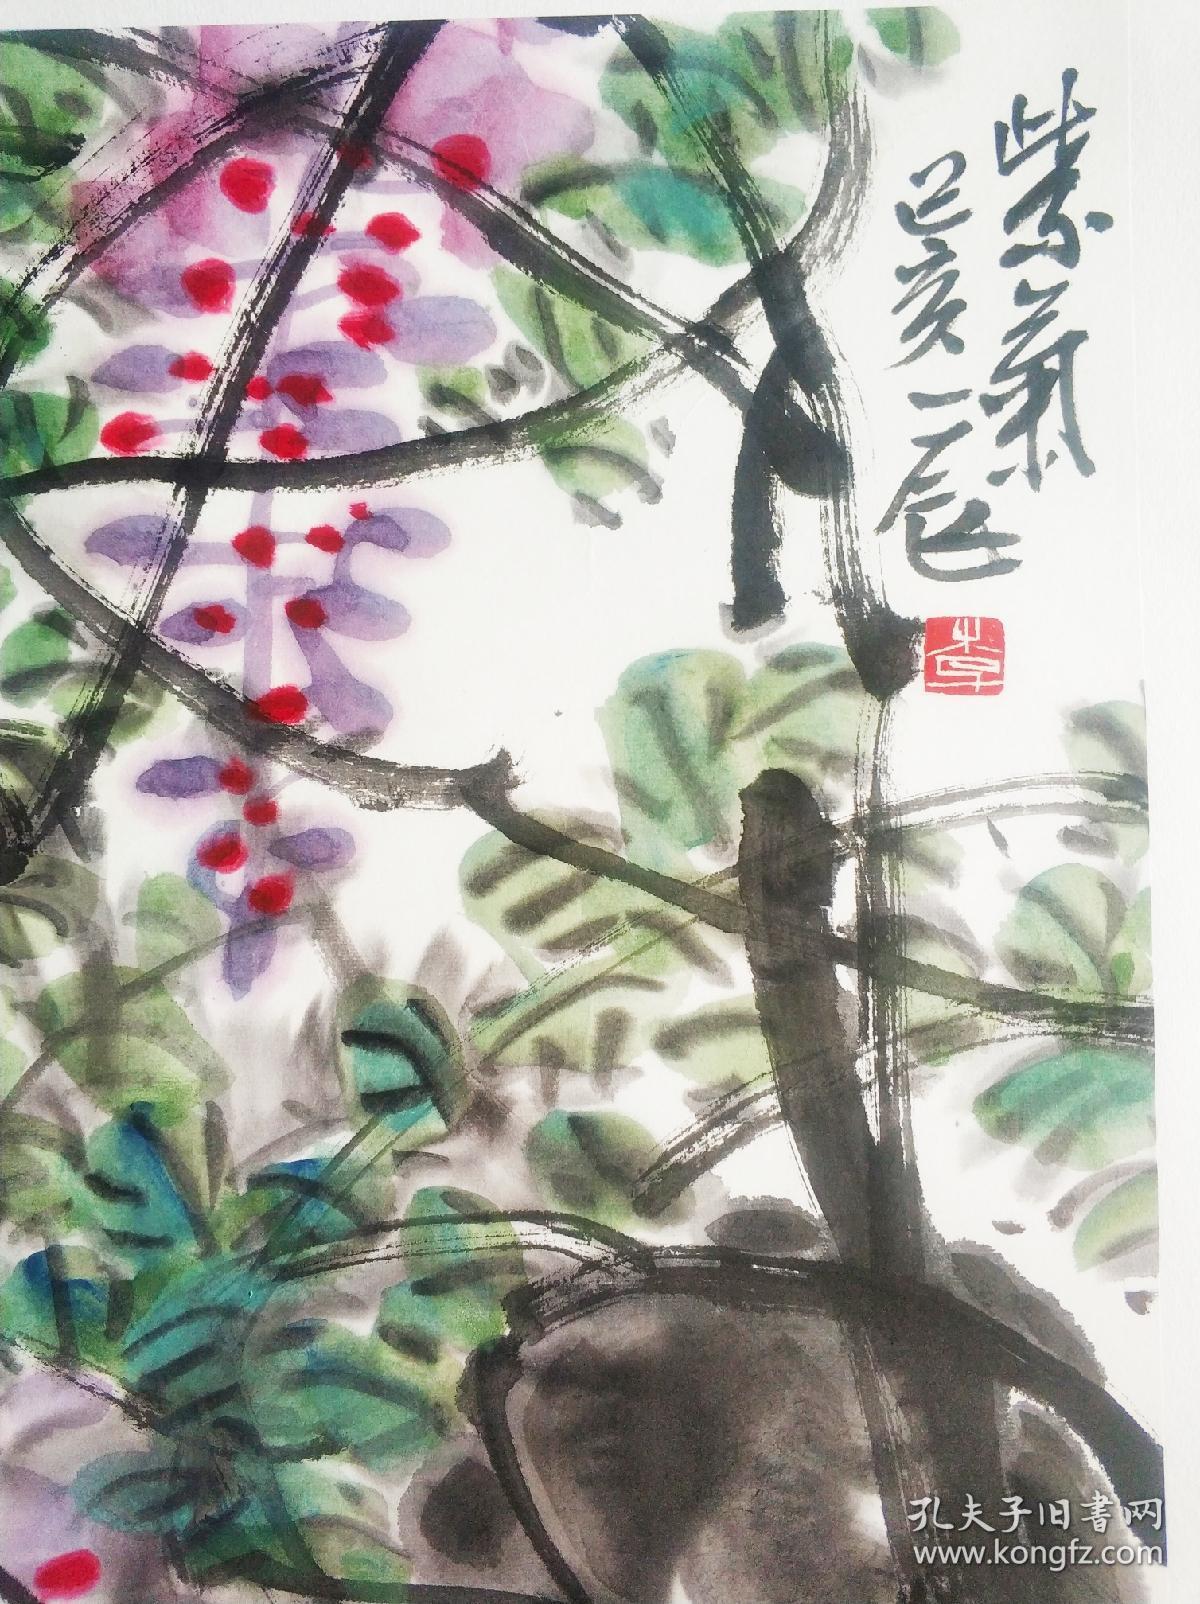 紫气
己亥一辰
李
孔夫子旧書网
www.kongfz.com